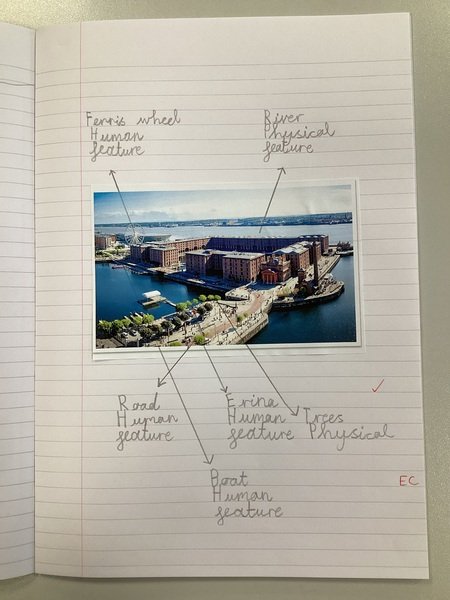 Ferris wheel
Human
feature
River
Physical
feature
Road
Human
feature
Erina
Human
feature
Trees
Physical
Boat
Human
feature
EC